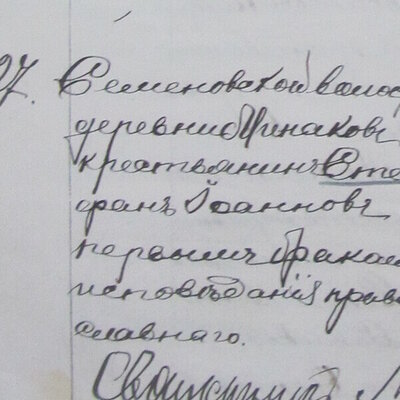 27. Семеновской волос
деревни Чинаковъ
крестьянинъ Сте
фанъ Іоанновъ
первымъ бракомъ
исповѣданія прав
славнаго.